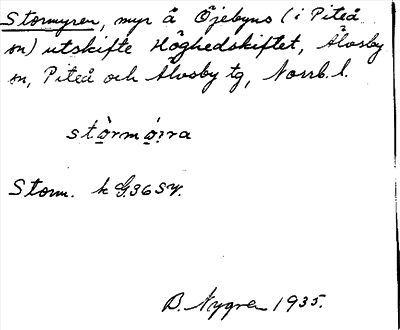 Stormyren, myr å Öjebyns (i Piteå
sn) utskifte Höghedskiftet, Älvsby
sn, Piteå och Älvsby tg, Norrb. l.
störmö̩rra
Storm. k G.36 SV.
B. Nygren 1935.